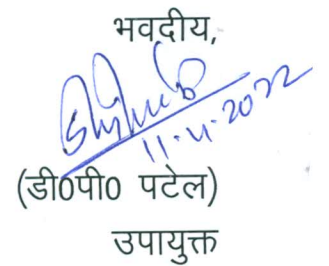 भवदीय,
11.4.2022
(डी0पी0 पटेल)
उपायुक्त